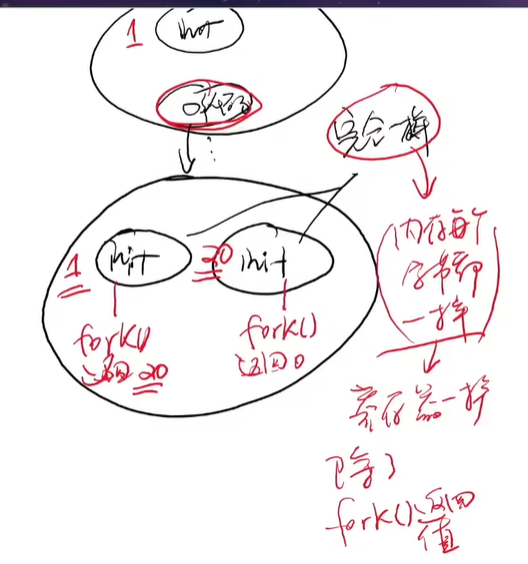 1 init
完全一样
1 init
20 init
fork()
返回 20
fork()
返回 0
(内存每个
字节都
一样)
寄存器一样
除了
fork()返回
值